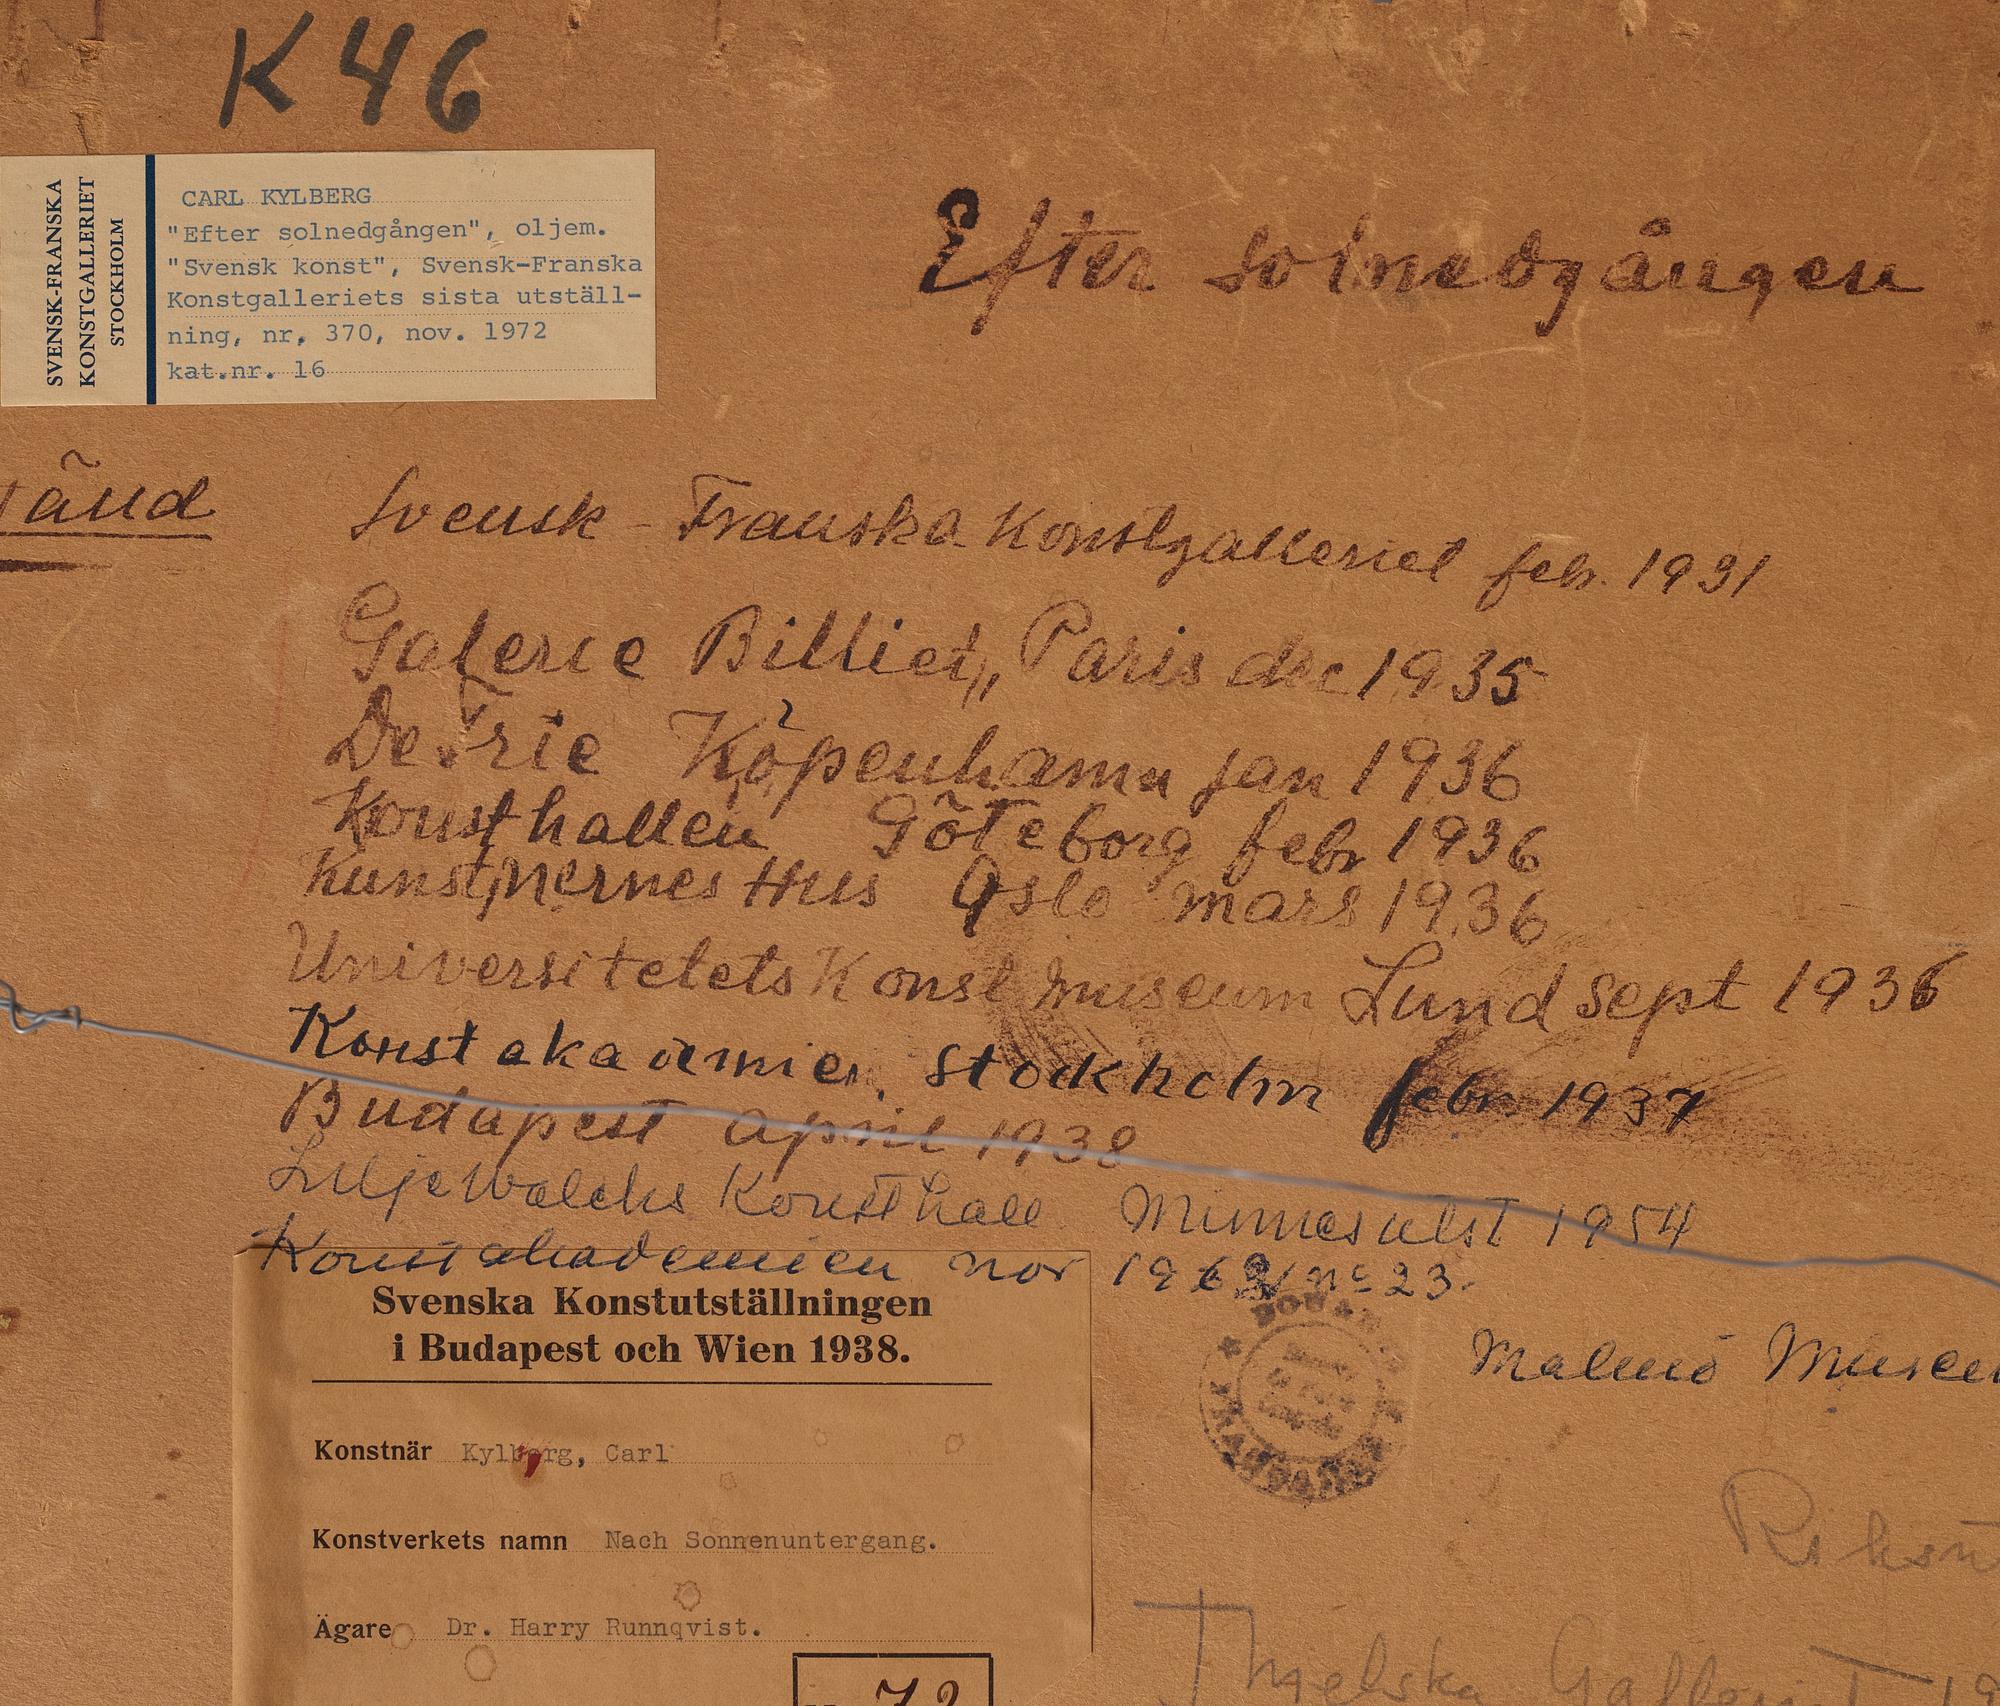 K 46
SVENSK-FRANSKA
KONSTGALLERIET
STOCKHOLM
CARL KYLBERG
"Efter solnedgången", oljem.
"Svensk konst", Svensk-Franska
Konstgalleriets sista utställ-
ning, nr. 370, nov. 1972
kat.nr. 16
Efter solnedgången
Svensk-Franska Konstgalleriet febr. 1931
Galerie Billiet, Paris dec 1935
De Frie Köpenhamn jan 1936
Konsthallen Göteborg febr 1936
Kunstnernes Hus Oslo mars 1936
Universitetets Konst museum Lund sept 1936
Konstakademien Stockholm febr. 1937
Budapest april 1938
Liljewalchs Konsthall Minnesutst 1954
Konstakademien nov 1962 nº 23.
Svenska Konstutställningen
i Budapest och Wien 1938.
Malmö
Konstnär Kylberg, Carl
Konstverkets namn Nach Sonnenuntergang.
Ägare Dr. Harry Runnqvist.
Thielska Galleriet
72